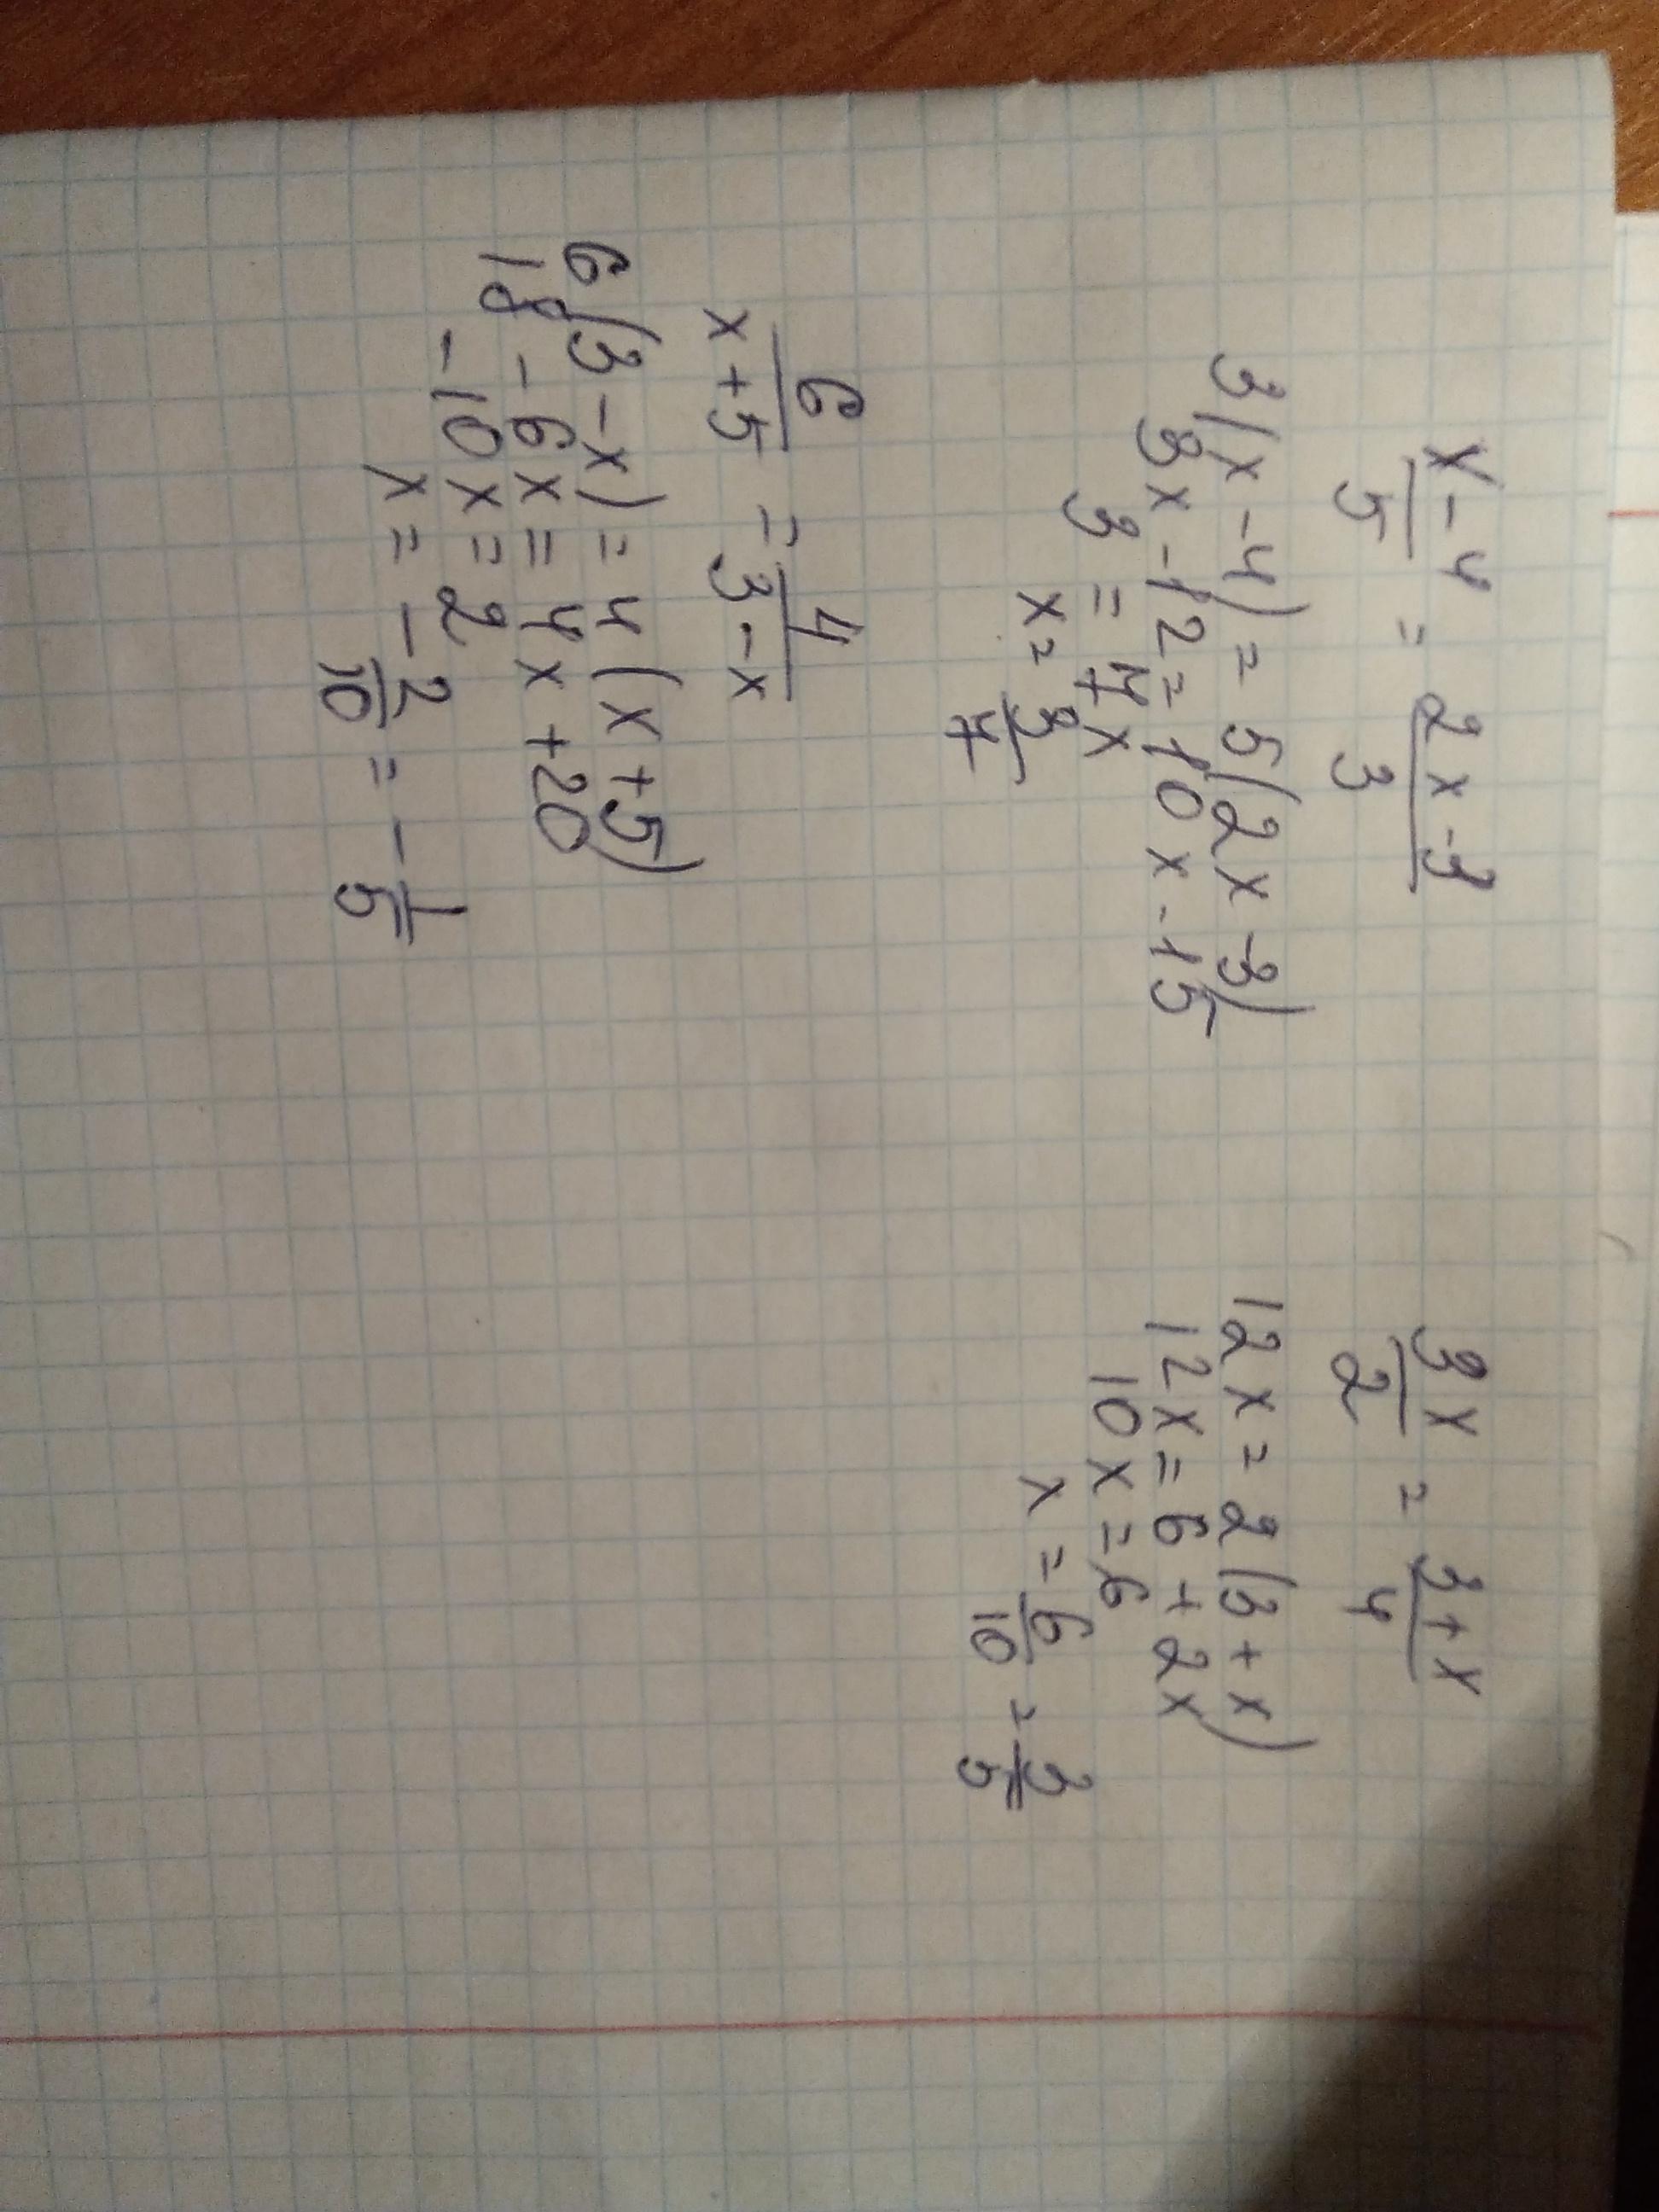 x-4/5 = 2x-3/3
3(x-4) = 5(2x-3)
3x-12=10x-15
3 = 7x
x = 3/7
3x/2 = 3+x/4
12x = 2(3+x)
12x = 6 + 2x
10x = 6
x = 6/10 = 3/5
6/x+5 = 4/3-x
6(3-x) = 4(x+5)
18 - 6x = 4x +20
-10x = 2
x = -2/10 = -1/5